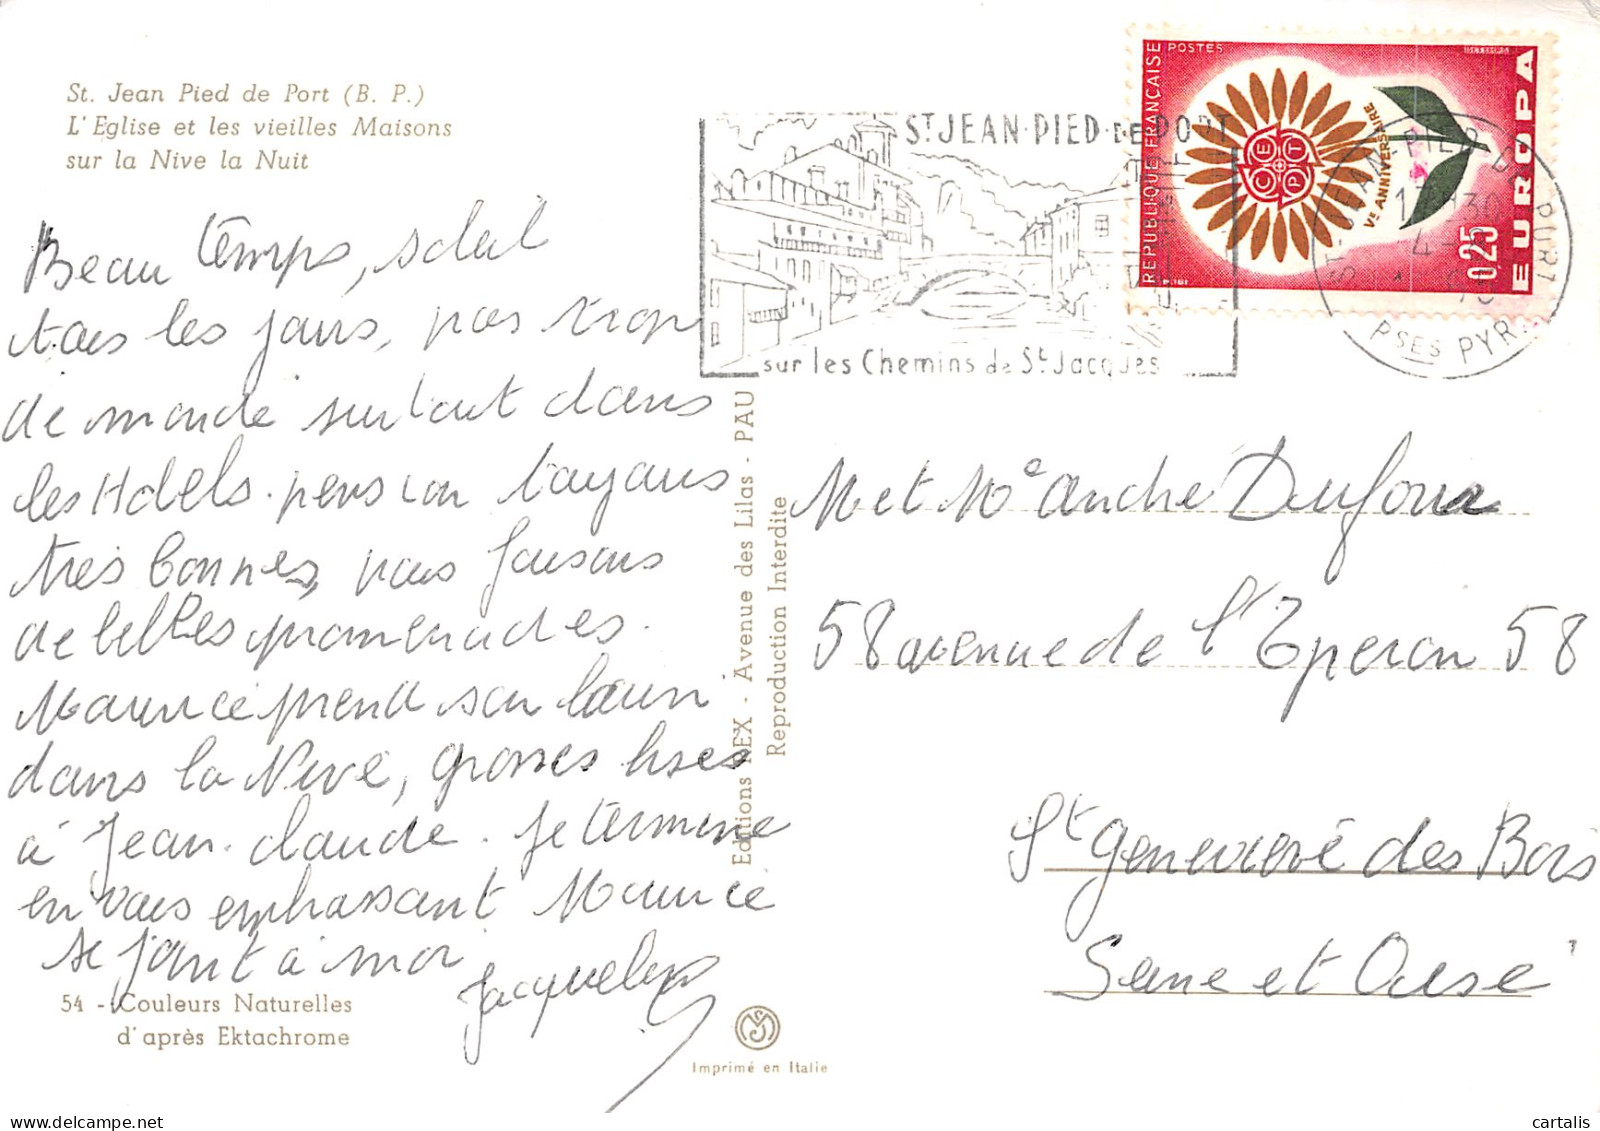 St. Jean Pied de Port (B. P.)
L'Eglise et les vieilles Maisons
sur la Nive la Nuit
Beau temps, soleil
tous les jours, pas trop
de monde surtout dans
les Hotels. pension toujours
très bonnes, nous faisons
de belles promenades.
Maurice prend son bain
dans la Nive, grosses bises
à Jean. Claude. Je termine
en vous embrassant Maurice
se joint à moi
Jacqueline
54 - Couleurs Naturelles
d'après Ektachrome
Editions REX - Avenue des Lilas - PAU
Reproduction Interdite
Imprimé en Italie
ST JEAN-PIED-DE-PORT
sur les Chemins de St Jacques
REPUBLIQUE FRANÇAISE
POSTES
CEPT
Ve ANNIVERSAIRE
0,25
EUROPA
PSES PYR
M et Me André Dufour
58 avenue de l'Eperon 58
Ste Geneviève des Bois
Seine et Oise
cartalis